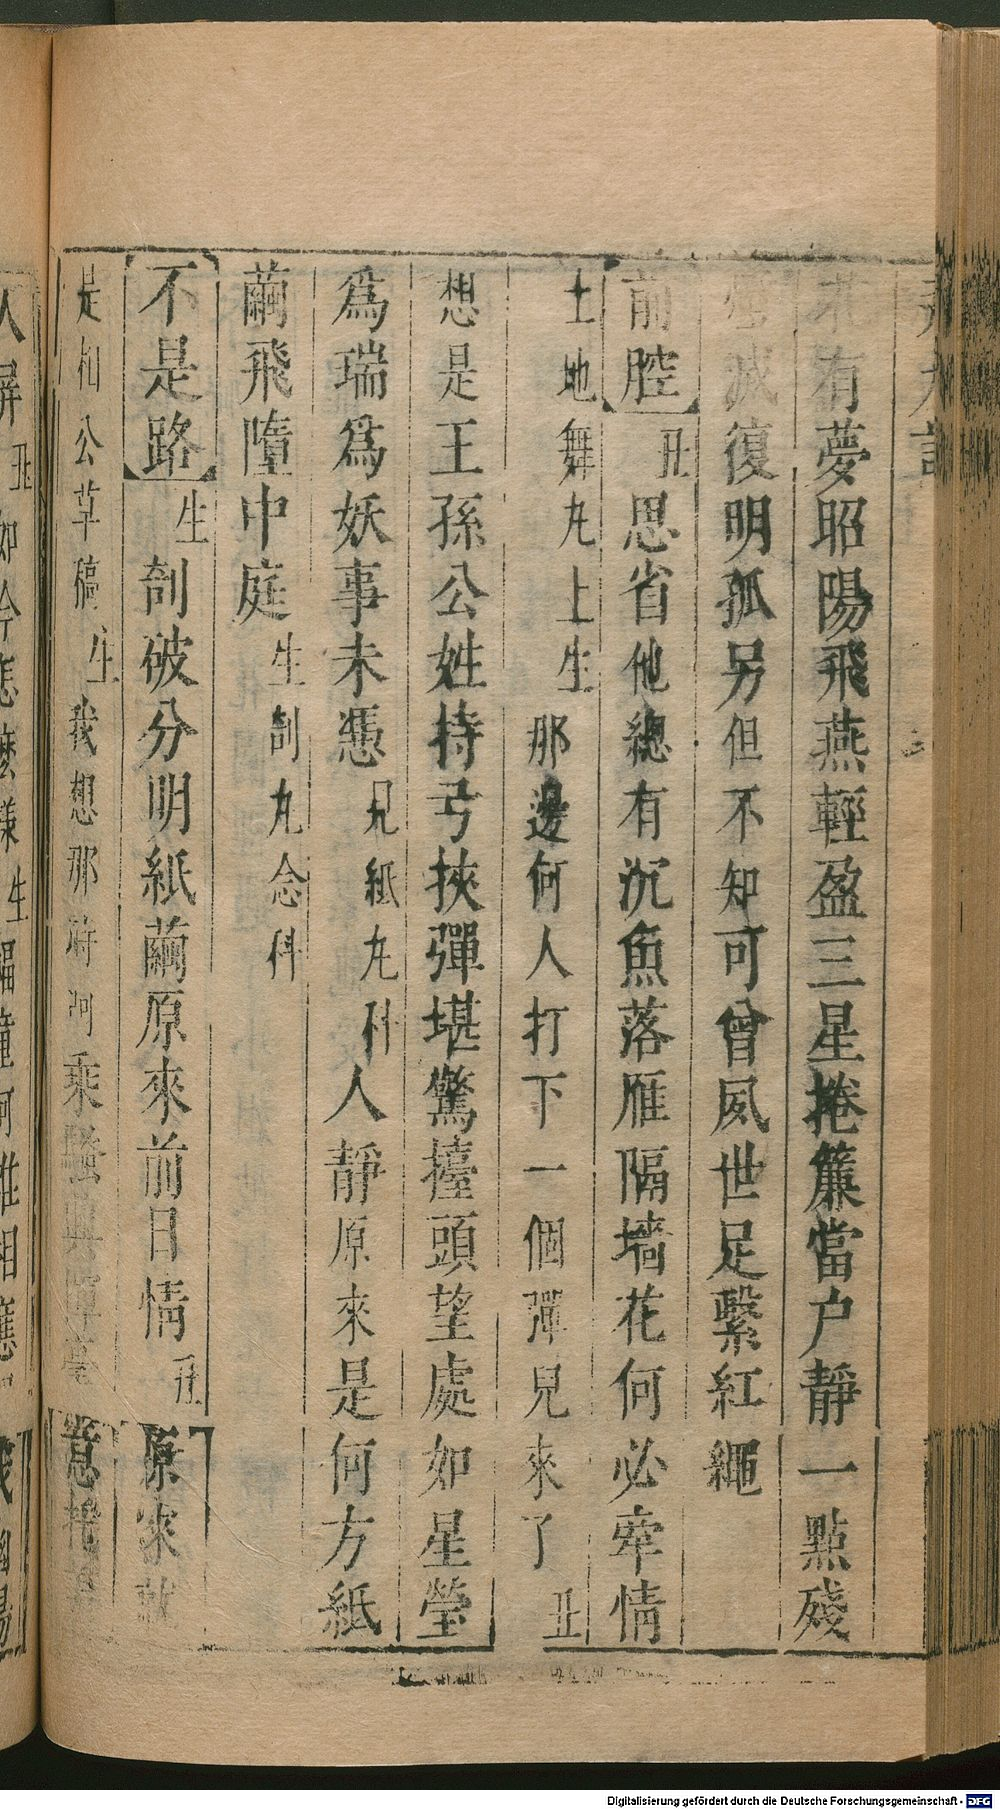 有夢昭陽飛燕輕盈三星捲簾當户靜一點殘
滅復明孤另但不知可曾夙世足繫紅繩
前腔丑思省他總有沉魚落雁隔墻花何必牽情
土地舞丸上生那邊何人打下一個彈兒來了丑
想是王孫公姓持弓挾彈堪驚擡頭望處如星瑩
爲瑞爲妖事未憑見紙丸科人靜原來是何方紙
繭飛墮中庭生剖丸念科
不是路生剖破分明紙繭原來前日情丑原來
是相公草稿生我想那時河乘騷興意
人丑如今怎麽樣生
Digitalisierung gefördert durch die Deutsche Forschungsgemeinschaft - DFG